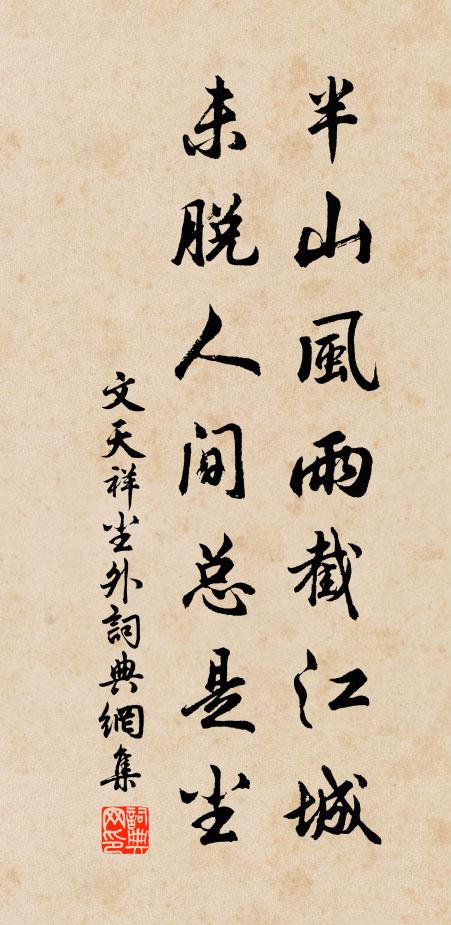 半山風雨截江城
未脱人间总是尘
文天祥尘外詞典網集
詞典网印